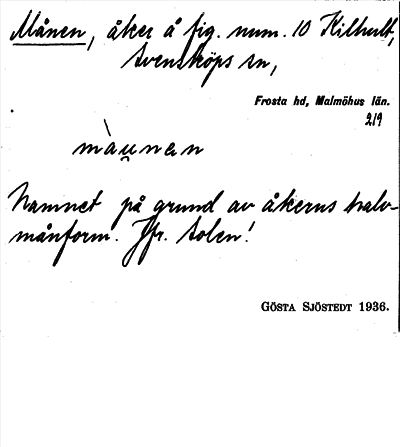 Månen, åker å fig. num. 10 Kilhult,
Svensköps sn,
Frosta hd, Malmöhus län.
219
màu̯nan
Namnet på grund av åkerns halv-
månform. Jfr. Solen!
GÖSTA SJÖSTEDT 1936.